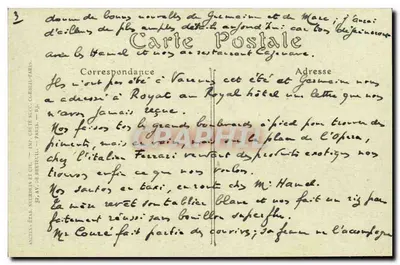 3
donne de bonnes nouvelles de Germain et de Marc ; j'aurai
d'ailleurs de plus amples détails aujourd'hui car nous déjeunerons
avec les Hamel et nos au restaurant
Carte Postale
Correspondance
Adresse
Ils n'ont pas été à Varenne cet été et Germain nous
a adressé à Royat au Royal hôtel une lettre que nous
n'avons jamais reçue.
Nos faisons tos les grands boulevards à pied pour trouver des
piments, mais en vain, mais sur la place de l'Opéra,
chez l'italien Ferrari vendant des produits exotiques nos
trouvons enfin ce que nos voulons.
Nos sautons en taxi, en route chez Me Hamel.
La met son tablier blanc et nos fait un riz par
faitement réussi sans bouillon superflu.
Me Couré fait partie des convives ; sa femme ne l'accompagne